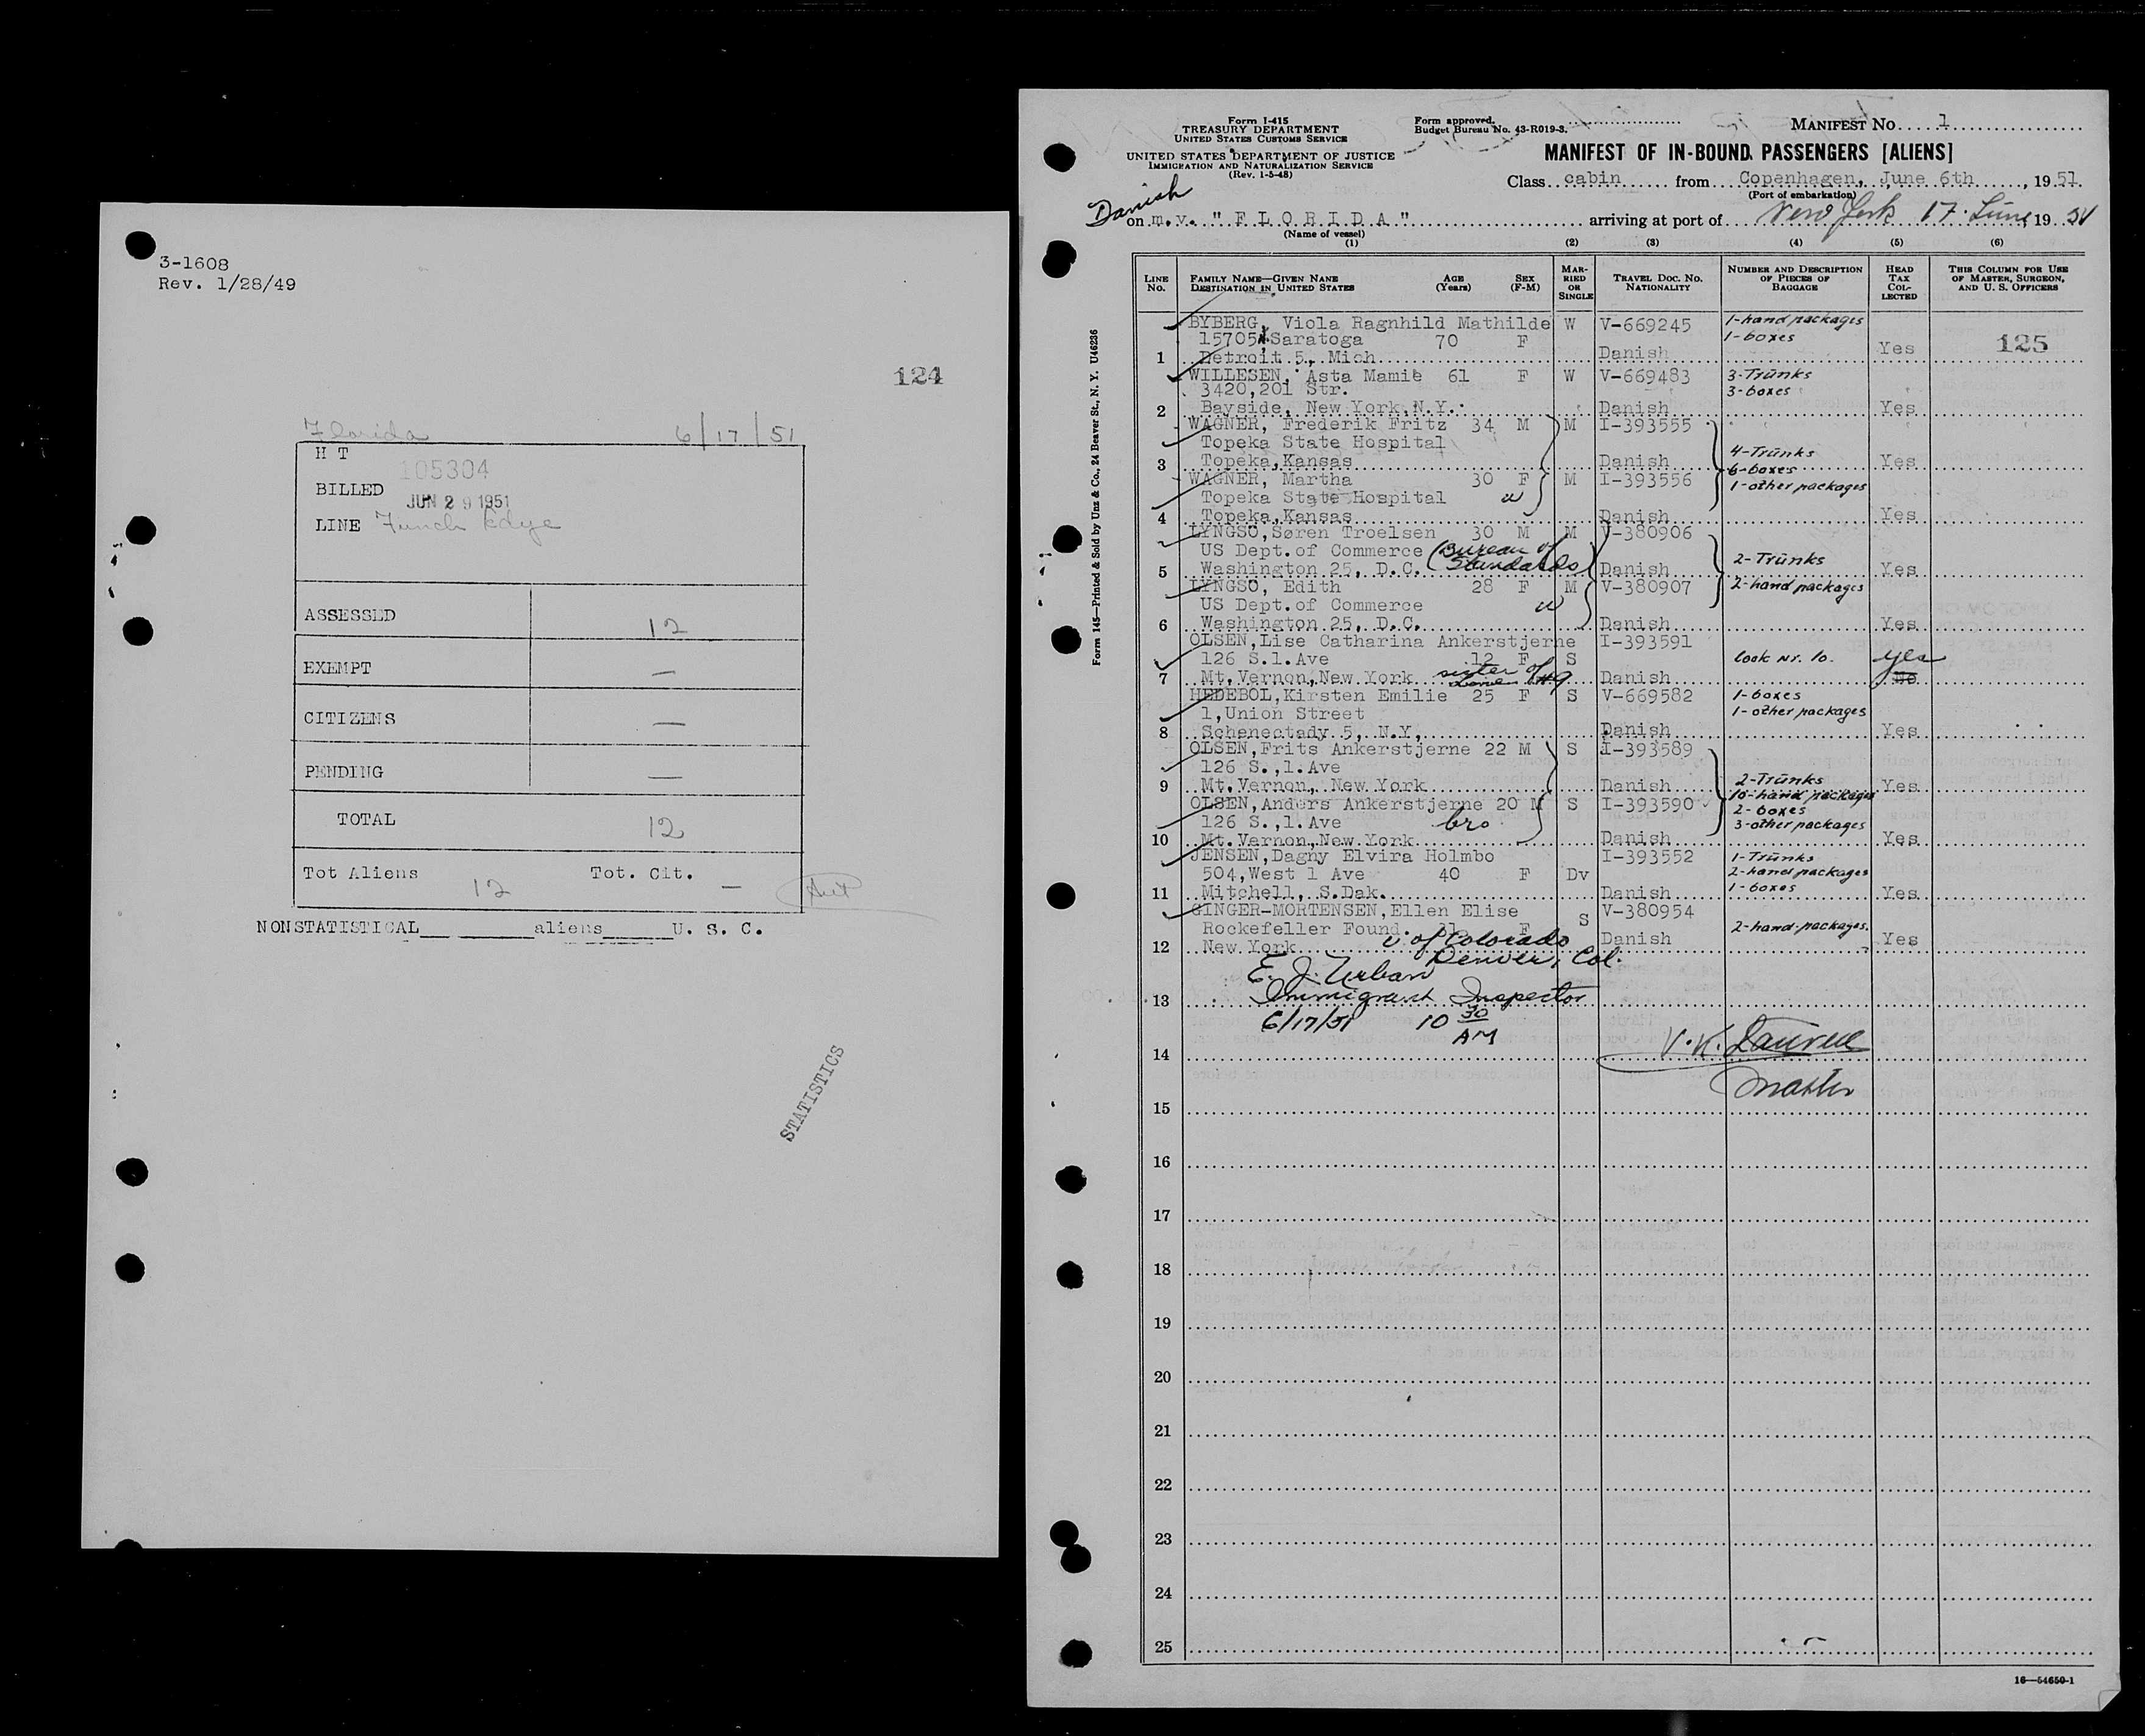 3-1608
Rev. 1/28/49
124
Florida 6/17/51
H T
105304
BILLED JUN 29 1951
LINE Funch Edye
ASSESSED 12
EXEMPT —
CITIZENS —
PENDING —
TOTAL 12
Tot Aliens 12 Tot. Cit. —
NONSTATISTICAL aliens U. S. C.
STATISTICS
Form I-415
TREASURY DEPARTMENT
UNITED STATES CUSTOMS SERVICE
UNITED STATES DEPARTMENT OF JUSTICE
IMMIGRATION AND NATURALIZATION SERVICE
(Rev. 1-5-48)
Form approved.
Budget Bureau No. 43-R019-3.
MANIFEST No. 1
MANIFEST OF IN-BOUND PASSENGERS [ALIENS]
Class cabin from Copenhagen, June 6th, 1951
(Port of embarkation)
Danish
on m.v. "FLORIDA" arriving at port of New York 17. June, 1951
(Name of vessel)
(1) (2) (3) (4) (5) (6)
LINE No. FAMILY NAME—GIVEN NANE DESTINATION IN UNITED STATES AGE (Years) SEX (F-M) MARRIED OR SINGLE TRAVEL DOC. NO. NATIONALITY NUMBER AND DESCRIPTION OF PIECES OF BAGGAGE HEAD TAX COLLECTED THIS COLUMN FOR USE OF MASTER, SURGEON, AND U. S. OFFICERS
Form 145—Printed & Sold by Unz & Co., 24 Beaver St., N. Y. U46236
BYBERG, Viola Ragnhild Mathilde W V-669245 1-hand packages
15705 Saratoga 70 F 1-boxes
1 Detroit 5, Mich Danish Yes 125
WILLESEN, Asta Mamie 61 F W V-669483 3-Trunks
3420,201 Str. 3-boxes
2 Bayside, New York,N.Y. Danish Yes
WAGNER, Frederik Fritz 34 M M I-393555
Topeka State Hospital 4-Trunks
3 Topeka,Kansas Danish 6-boxes Yes
WAGNER, Martha 30 F M I-393556 1-other packages
Topeka State Hospital w
4 Topeka,Kansas Danish Yes
LYNGSÖ,Søren Troelsen 30 M M V-380906
US Dept.of Commerce (Bureau of Standards) 2-Trunks
5 Washington 25, D.C. Danish Yes
LYNGSÖ, Edith 28 F M V-380907 2-hand packages
US Dept.of Commerce w
6 Washington 25, D.C. Danish Yes
OLSEN,Lise Catharina Ankerstjerne I-393591
126 S.1.Ave 12 F S look Nr. 10. yes
7 Mt.Vernon,New York sister of Line #9 Danish No
HEDEBOL,Kirsten Emilie 25 F S V-669582 1-boxes
1,Union Street 1-other packages
8 Schenectady 5, N.Y, Danish Yes
OLSEN,Frits Ankerstjerne 22 M S I-393589
126 S.,1.Ave 2-Trunks
9 Mt.Vernon, New York Danish 10-hand packages Yes
OLSEN,Anders Ankerstjerne 20 M S I-393590 2-boxes
126 S.,1.Ave bro 3-other packages
10 Mt.Vernon,New York Danish Yes
JENSEN,Dagny Elvira Holmbo I-393552 1-Trunks
504,West 1 Ave 40 F Dv 2-hand packages
11 Mitchell, S.Dak. Danish 1-boxes Yes
GINGER-MORTENSEN,Ellen Elise S V-380954
Rockefeller Found. F 2-hand-packages.
12 New York U. of Colorado Danish Yes
Denver, Col.
E. J. Urban
13 Immigrant Inspector
6/17/51 10 30 AM
14 V.K. Laursen
Master
15
16
17
18
19
20
21
22
23
24
25
16—54650-1